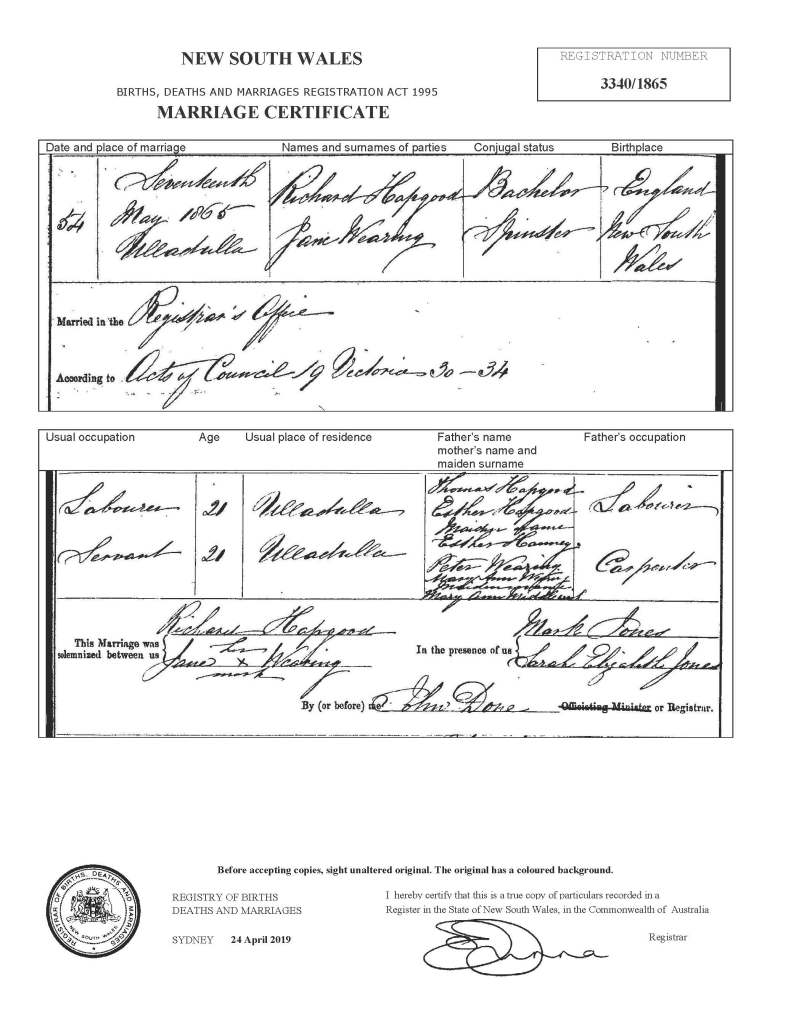 NEW SOUTH WALES
REGISTRATION NUMBER
3340/1865
BIRTHS, DEATHS AND MARRIAGES REGISTRATION ACT 1995
MARRIAGE CERTIFICATE
Date and place of marriage Names and surnames of parties Conjugal status Birthplace
Seventeenth Richard Hapgood Bachelor England
54 May 1865
Ulladulla Jane Wearing Spinster New South
Wales
Married in the Registrar's Office
According to Acts of Council 19 Victoria 30 – 34
Usual occupation Age Usual place of residence Father's name Father's occupation
mother's name and
maiden surname
Thomas Hapgood
Labourer 21 Ulladulla Esther Hapgood Labourer
Maiden name
Servant 21 Ulladulla Esther Hanney
Peter Wearing Carpenter
Mary Ann
Mary Ann
This Marriage was solemnized between us
Richard Hapgood
Jane her x mark Wearing
In the presence of us
Mark Jones
Sarah Elizabeth Jones
By (or before) me John Done Officiating Minister or Registrar.
Before accepting copies, sight unaltered original. The original has a coloured background.
REGISTRAR OF BIRTHS, DEATHS AND MARRIAGES
NEW SOUTH WALES
REGISTRY OF BIRTHS
DEATHS AND MARRIAGES
SYDNEY 24 April 2019
I hereby certify that this is a true copy of particulars recorded in a
Register in the State of New South Wales, in the Commonwealth of Australia
Registrar